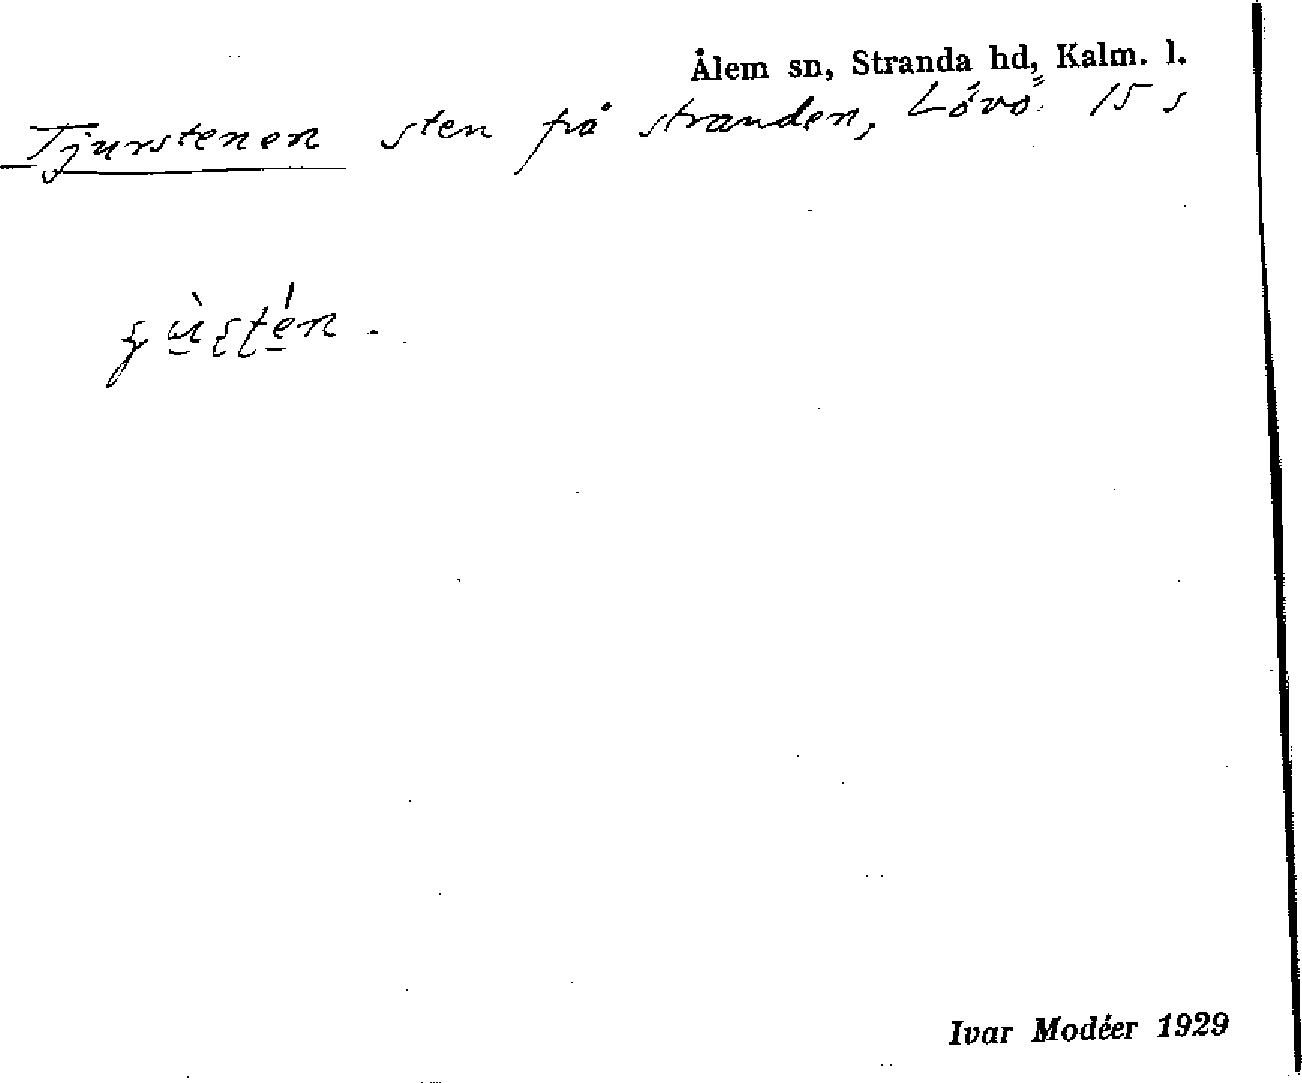 Ålem sn, Stranda hd, Kalm. l.
Tjurstenen sten på stranden, Lövö. 15 s
Ivar Modéer 1929